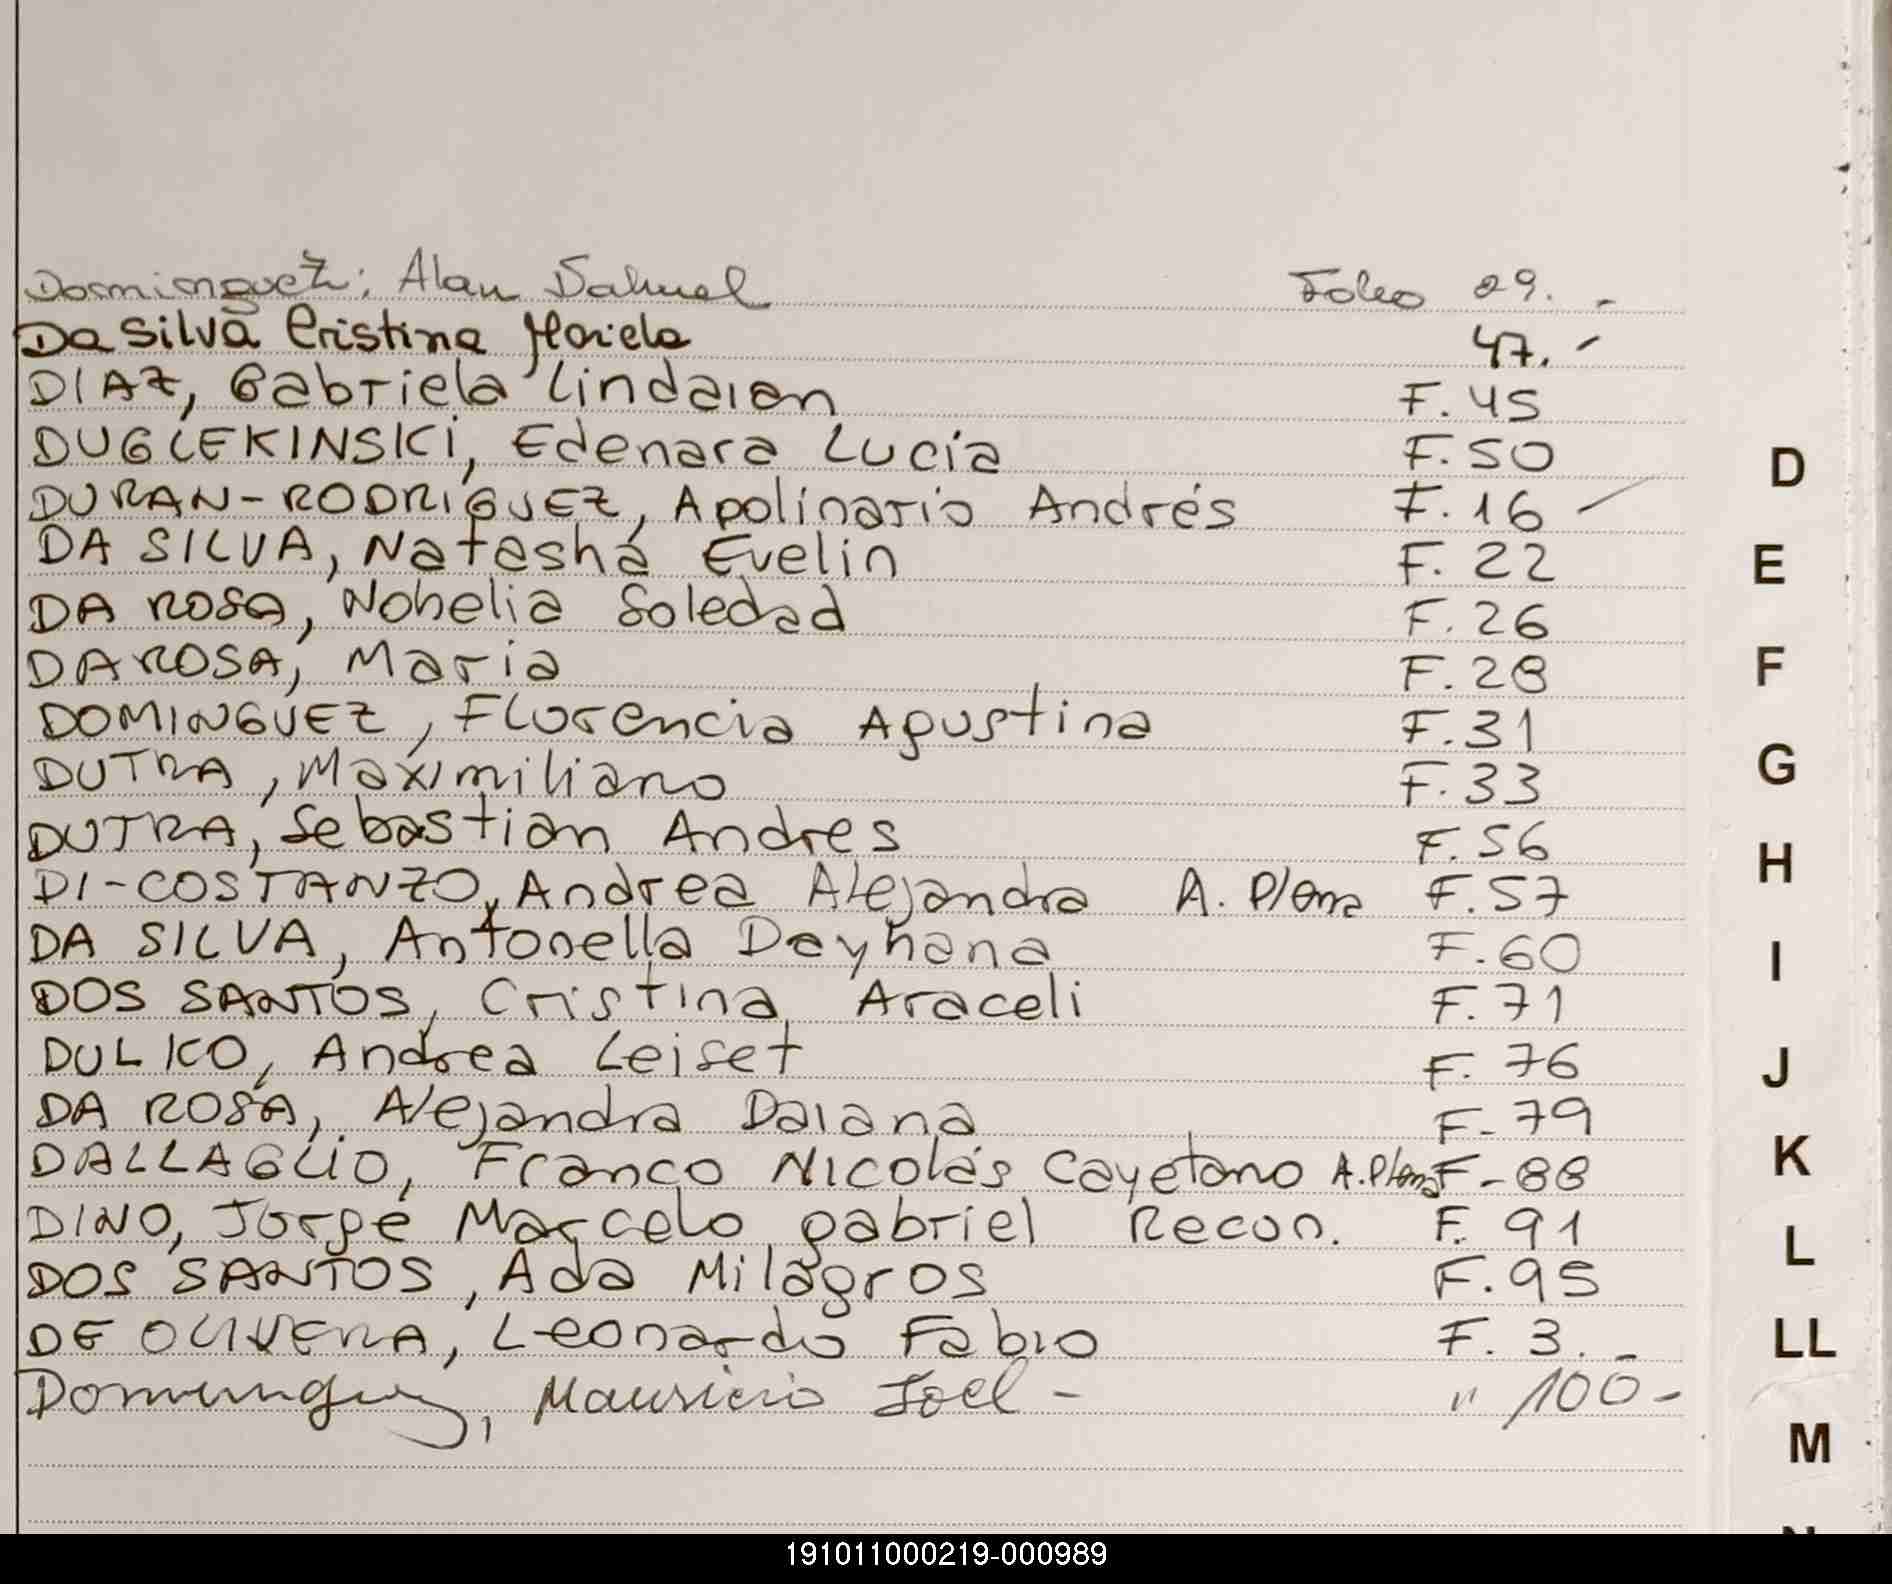 Dominguez; Alan Nahuel Folio 29. -
Da Silva Cristina Mariela 47. -
DIAZ, Gabriela Lindaian F. 45
DUGLEKINSKI, Edenara Lucía F. 50
DURAN-RODRIGUEZ, Apolinario Andrés F. 16
DA SILVA, Natasha Evelin F. 22
DA ROSA, Nohelia Soledad F. 26
DAROSA, Maria F. 28
DOMINGUEZ, Florencia Agustina F. 31
DUTRA, Maximiliano F. 33
DUTRA, Sebastian Andres F. 56
DI-COSTANZO, Andrea Alejandra A. Plena F. 57
DA SILVA, Antonella Deyhana F. 60
DOS SANTOS, Cristina Araceli F. 71
DULKO, Andrea Leiset F. 76
DA ROSA, Alejandra Daiana F- 79
DALLAGLIO, Franco Nicolás Cayetano A. Plena F- 88
DINO, Jorge Marcelo gabriel Recon. F. 91
DOS SANTOS, Ada Milagros F. 95
DE OLIVERA, Leonardo Fabio F. 3. -
Dominguez, Mauricio Joel - " 100-
D
E
F
G
H
I
J
K
L
LL
M
191011000219-000989